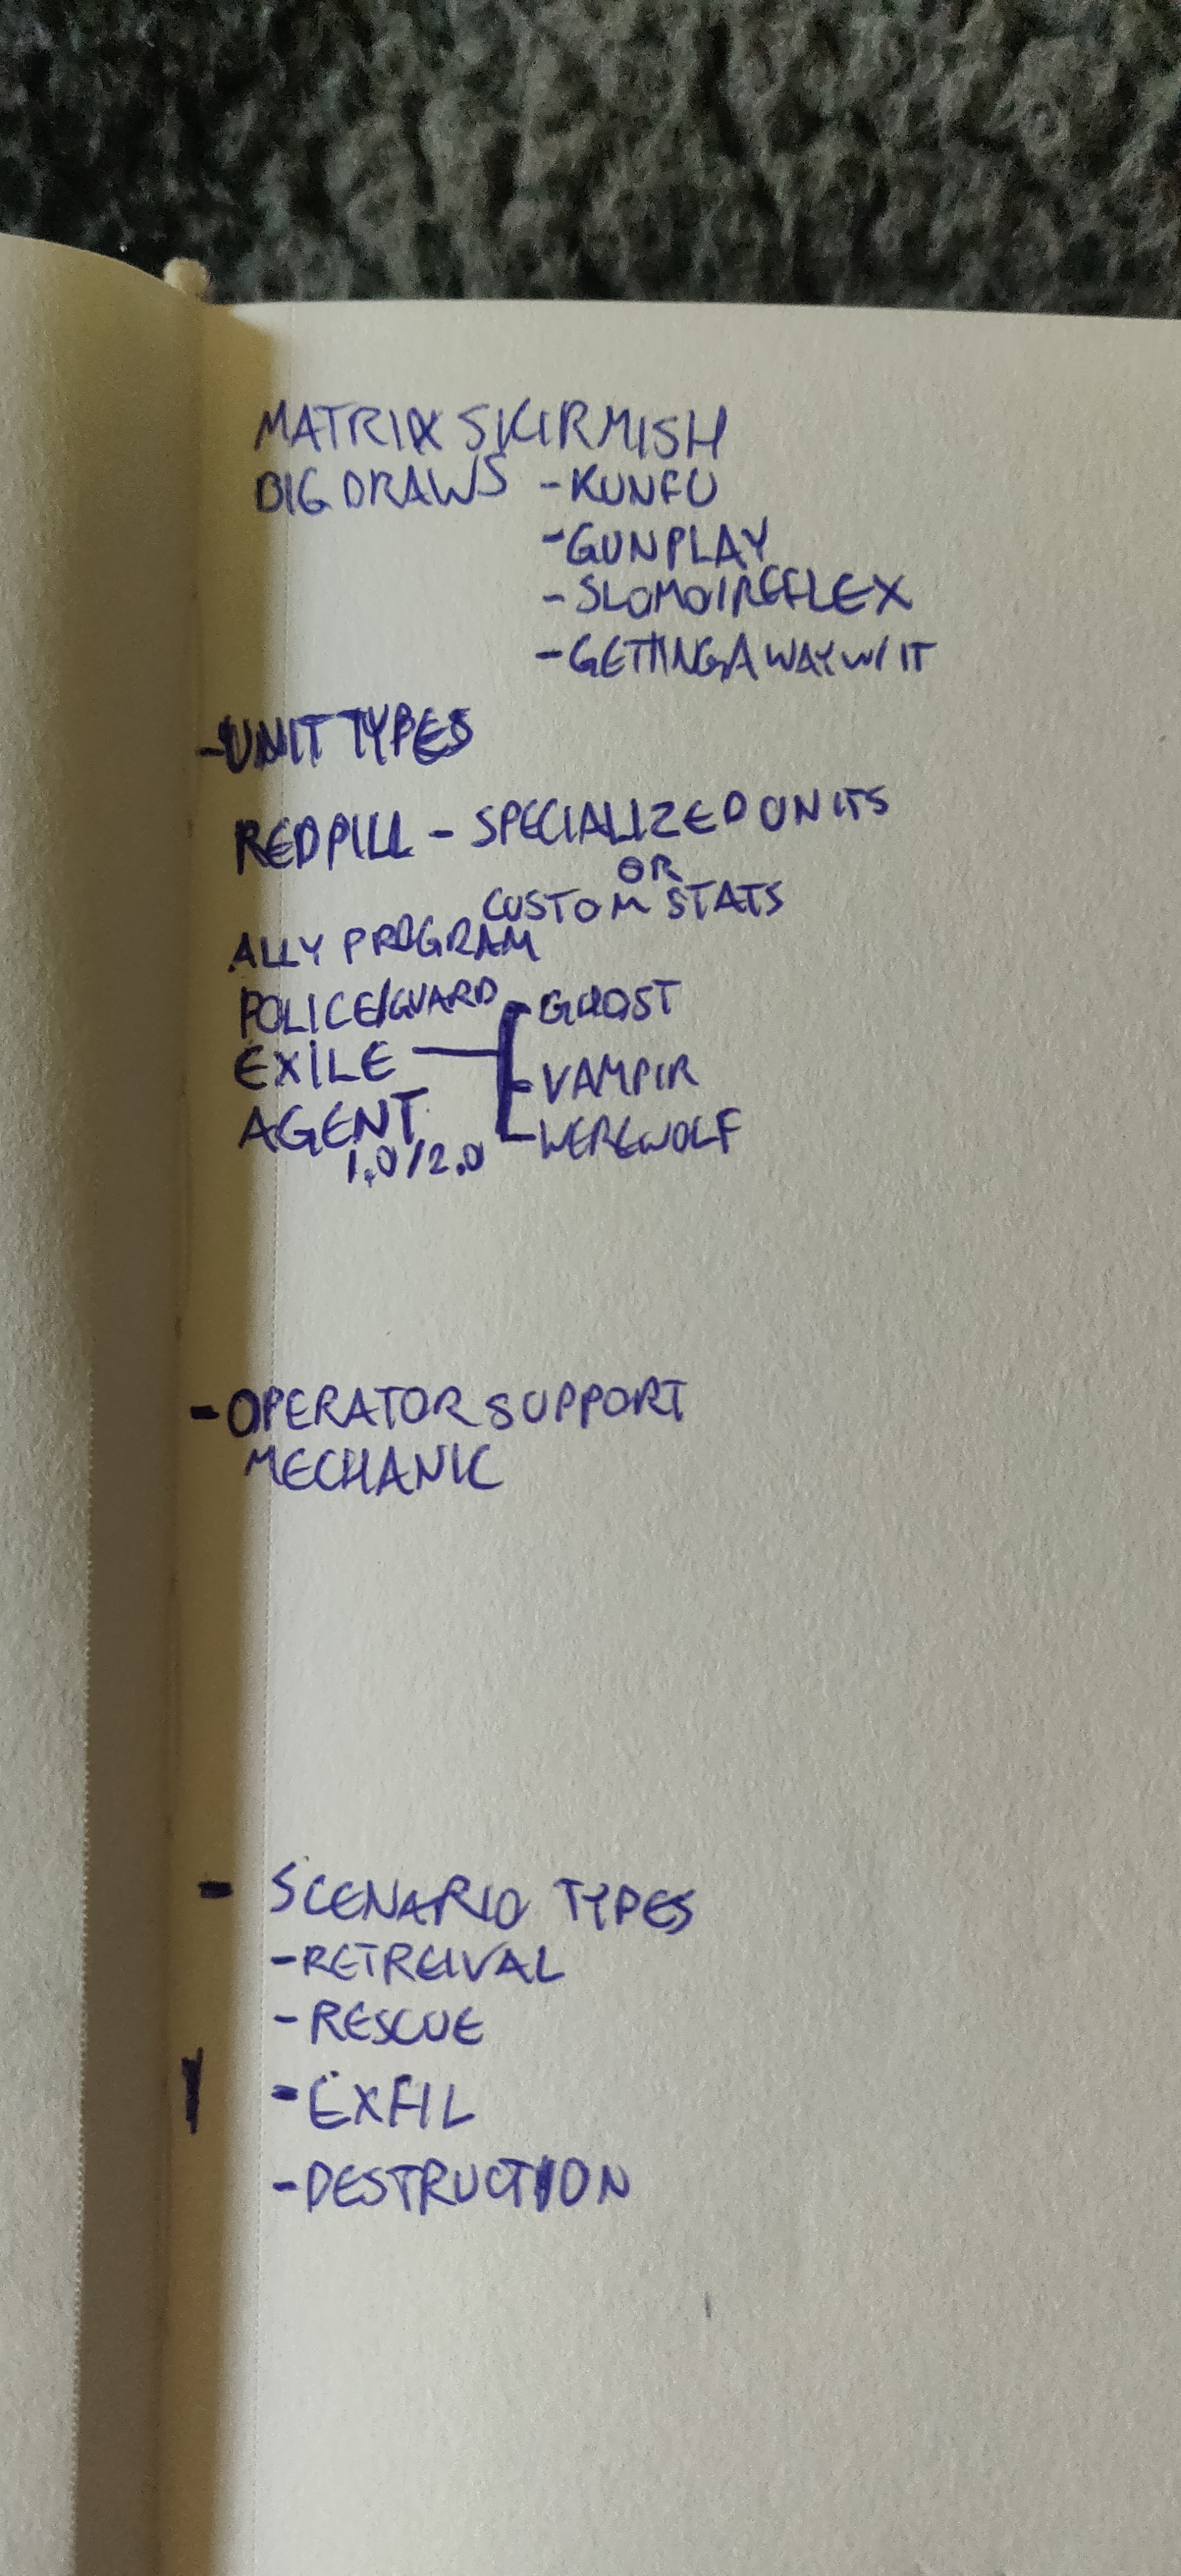 MATRIX SKIRMISH
BIG DRAWS - KUNFU
- GUNPLAY
- SLOMO/REFLEX
- GETTING AWAY W/ IT
- UNIT TYPES
REDPILL - SPECIALIZED UNITS
OR
CUSTOM STATS
ALLY PROGRAM
POLICE/GUARD
- GHOST
EXILE
- VAMPIR
AGENT
- WEREWOLF
1.0/2.0
- OPERATOR SUPPORT
MECHANIC
- SCENARIO TYPES
- RETREIVAL
- RESCUE
- EXFIL
- DESTRUCTION